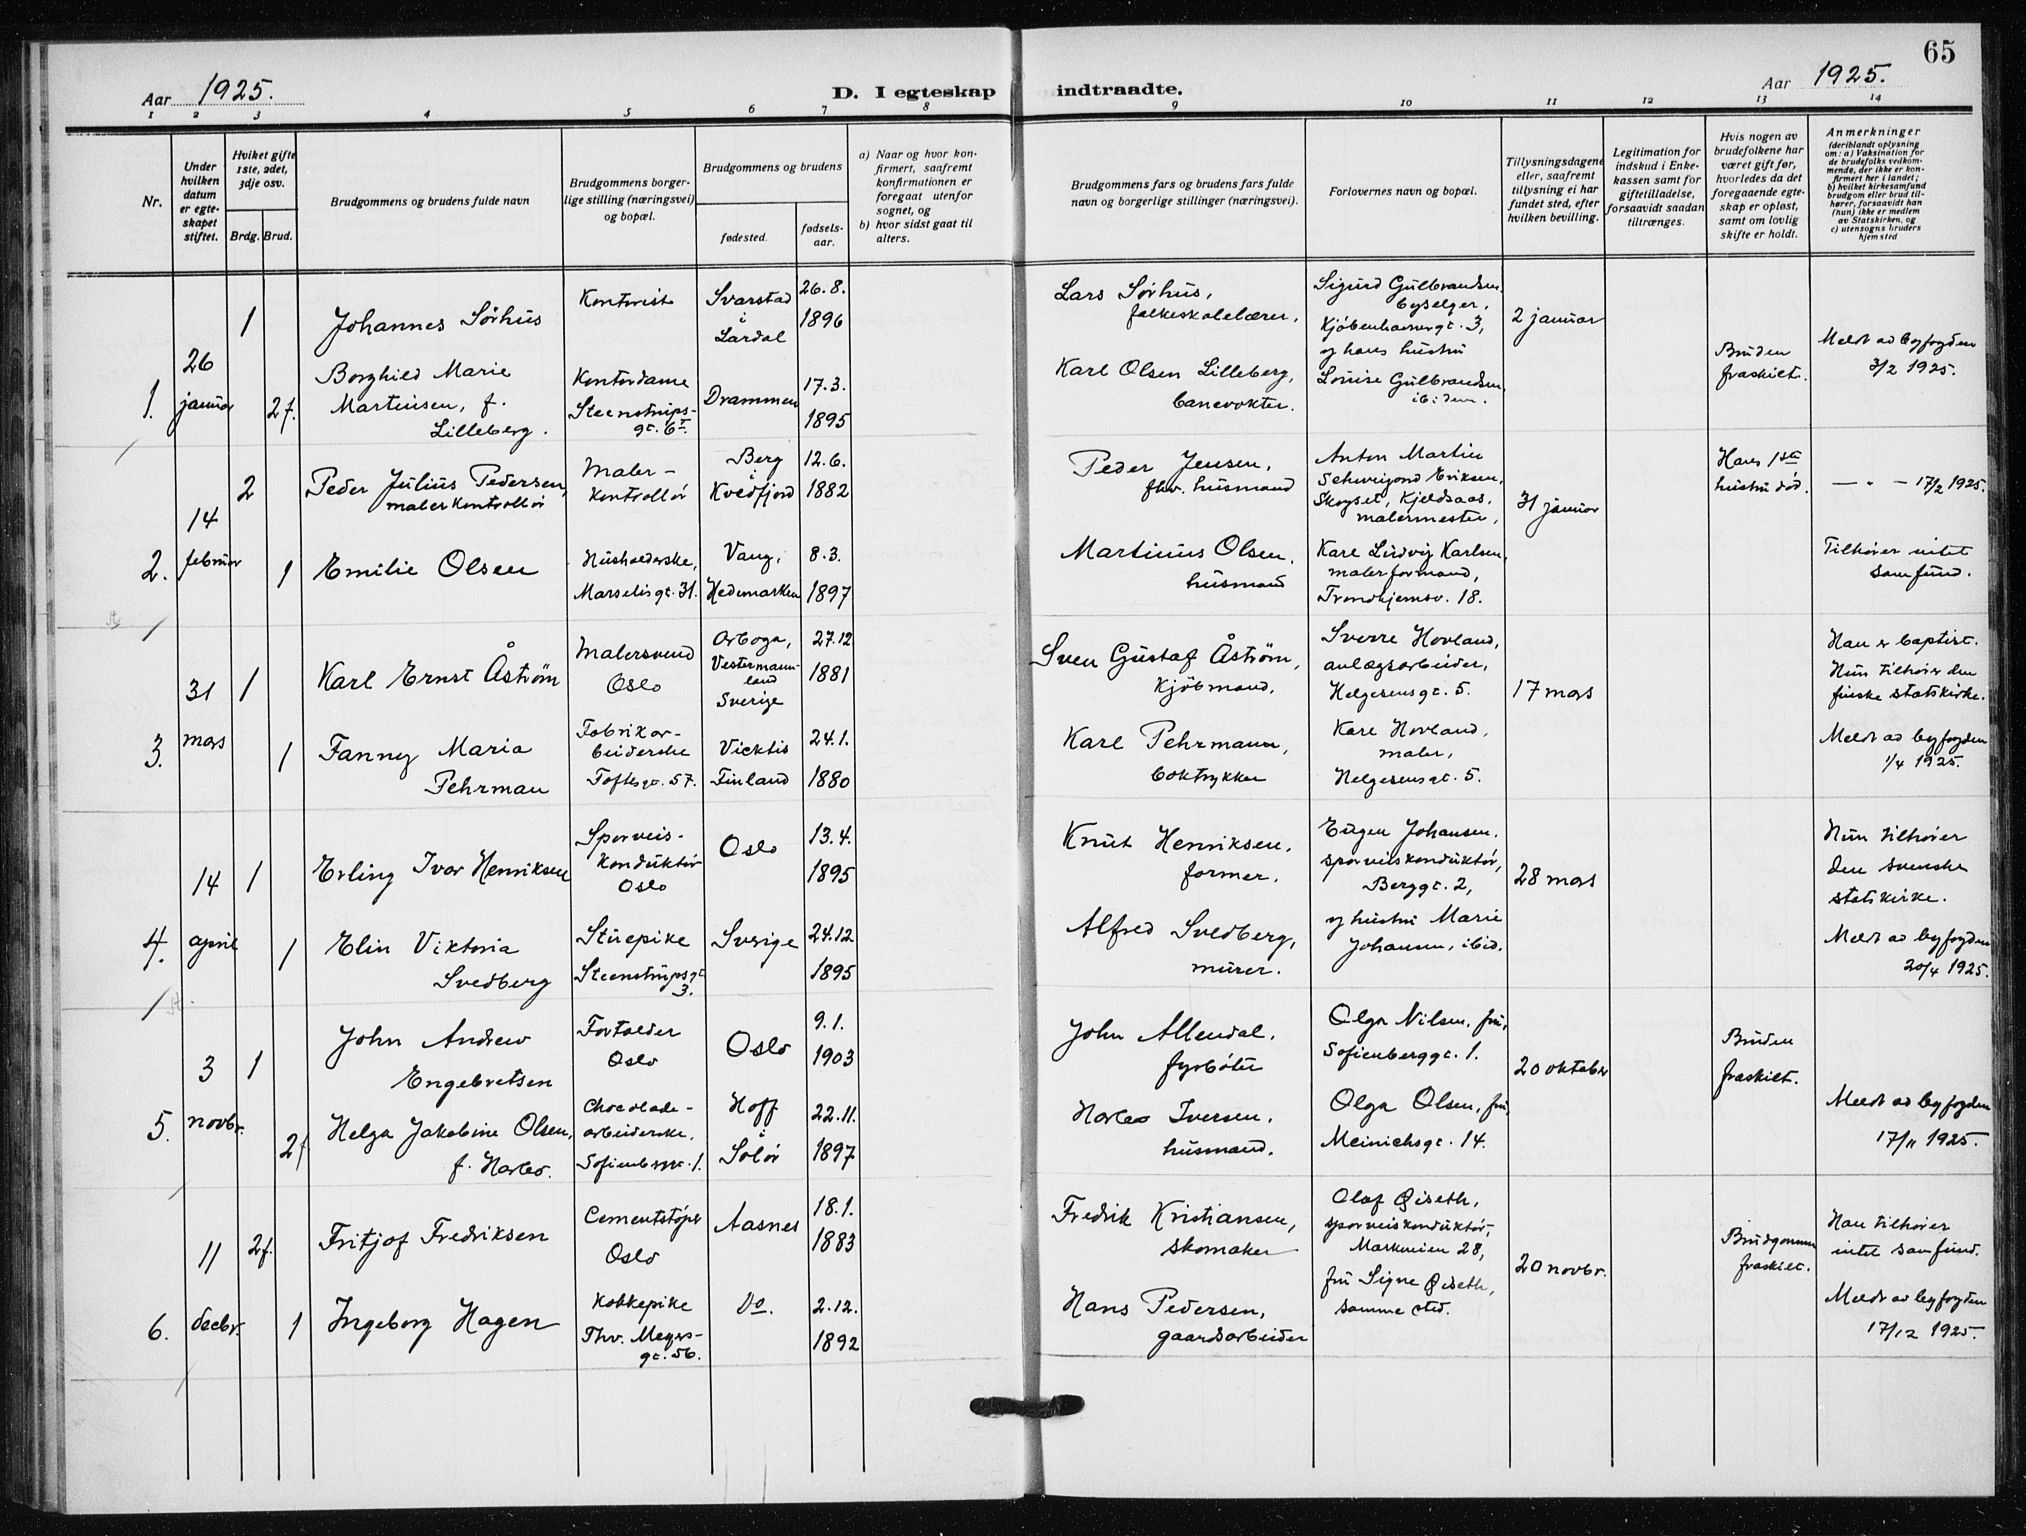 65
Aar 1925.
D. I egteskap indtraadte.
Aar 1925.
1 2 3 4 5 6 7 8 9 10 11 12 13 14
Nr.
Under hvilken datum er egteskapet stiftet.
Hvilket gifte 1ste, 2det, 3dje osv.
Brdg. Brud.
Brudgommens og brudens fulde navn
Brudgommens borgerlige stilling (næringsvei) og bopæl.
Brudgommens og brudens
fødested.
fødselsaar.
a) Naar og hvor konfirmert, saafremt konfirmationen er foregaat utenfor sognet, og
b) hvor sidst gaat til alters.
Brudgommens fars og brudens fars fulde navn og borgerlige stillinger (næringsvei).
Forlovernes navn og bopæl.
Tillysningsdagene eller, saafremt tillysning ei har fundet sted, efter hvilken bevilling.
Legitimation for indskud i Enkekassen samt for giftetilladelse, forsaavidt saadan tiltrænges.
Hvis nogen av brudefolkene har været gift før, hvorledes da det foregaaende egteskap er opløst, samt om lovlig skifte er holdt.
Anmerkninger
(deriblandt oplysning om: a) Vaksination for de brudefolks vedkommende, der ikke er konfirmert her i landet;
b) hvilket kirkesamfund brudgom eller brud tilhører, forsaavidt han (hun) ikke er medlem av Statskirken, og
c) utensogns bruders hjemsted
1.
26
januar
1
Johannes Sørhus
Kontorist
Svarstad
i
Lardal
26.8.
1896
Lars Sørhus,
folkeskolelærer.
Sigurd Gulbrandsen
byselger,
Kjøbenhavnergt. 3,
og hans hustru
Louise Gulbrandsen,
ibidem.
2 januar
Bruden
fraskilt.
Meldt av byfogden
3/2 1925.
2 f.
Borghild Marie
Martinsen, f.
Lilleberg.
Kontordame
Steenstrups-
gt. 6 I.
Drammen
17.3.
1895
Karl Olsen Lilleberg,
banevokter.
2.
14
februar
2
Peder Julius Pedersen,
malerkontrollør
Maler-
kontrollør
Berg
i
Kvedfjord
12.6.
1882
Peder Jensen,
fhv. husmand
Anton Martin
Eriksen,
Kjeldsaas,
malermester,
31 januar
Hans 1ste
hustru død.
— " — 17/2 1925.
1
Emilie Olsen
Husholderske,
Marselisgt. 31.
Vang,
Hedemarken
8.3.
1897
Martinius Olsen,
husmand
Karl Ludvig Karlsen,
malerformand,
Trondhjemsv. 18.
Tilhører intet
samfund.
3.
31
mars
1
Karl Ernst Åström
Malersvend
Oslo
Arboga,
Vestermann-
land
Sverige
27.12
1881
Sven Gustaf Åström,
Kjøbmand.
Sverre Hovland,
anlægsarbeider,
Helgesensgt. 5.
17 mars
Han er baptist.
Hun tilhører den
finske statskirke.
1
Fanny Maria
Pehrman
Fabrikar-
beiderske
Toftesgt. 57.
Vichtis
Finland
24.1.
1880
Karl Pehrmann,
boktrykker
Karl Hovland,
maler,
Helgesensgt. 5.
Meldt av byfogden
1/4 1925.
4.
14
april
1
Erling Ivar Henriksen
Sporveis-
konduktør
Oslo
Oslo
13.4.
1895
Knut Henriksen,
former.
Eugen Johansen,
sporveiskonduktør,
Berggt. 2,
og hustru Marie
Johansen, ibid.
28 mars
Hun tilhører
den svenske
statskirke.
1
Elin Viktoria
Svedberg
Stuepike
Steenstrupsgt
3.
Sverige
24.12
1895
Alfred Svedberg,
murer.
Meldt av byfogden
20/4 1925.
5.
3
novbr.
1
John Andrew
Engebretsen
Fortolder
Oslo
Oslo
9.1.
1903
John Allendal,
fyrbøter
Olga Nilsen, fru,
Sofienberggt. 1.
20 oktober
Bruden
fraskilt.
2 f
Helga Jakobine Olsen,
f. Harbo.
Chocolade-
arbeiderske,
Sofienberggt. 1.
Hoff
i
Solør
22.11.
1897
Harbo Iversen,
husmand.
Olga Olsen, fru,
Meinichsgt. 14.
Meldt av byfogden
17/11 1925.
6.
11
desbr.
2 f.
Fritjof Fredriksen
Cementstøper
Oslo
Aasnes
18.1.
1883
Fredrik Kristiansen,
skomaker
Olaf Øiseth,
sporveiskonduktør,
Markveien 28,
fru Signe Øiseth,
samme sted.
20 novbr.
Brudgommen
fraskilt.
Han tilhører
intet samfund.
1
Ingeborg Hagen
Kokkepike
Thv. Meyers-
gt. 56.
Do.
2.12.
1892
Hans Pedersen,
gaardsarbeider
Meldt av byfogden
17/12 1925.